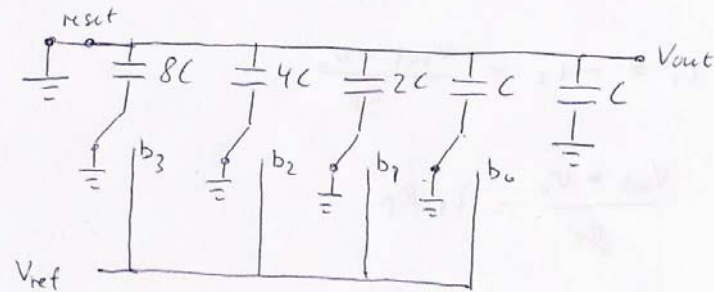 reset
8C 4C 2C C C Vout
b3 b2 b1 b0
Vref